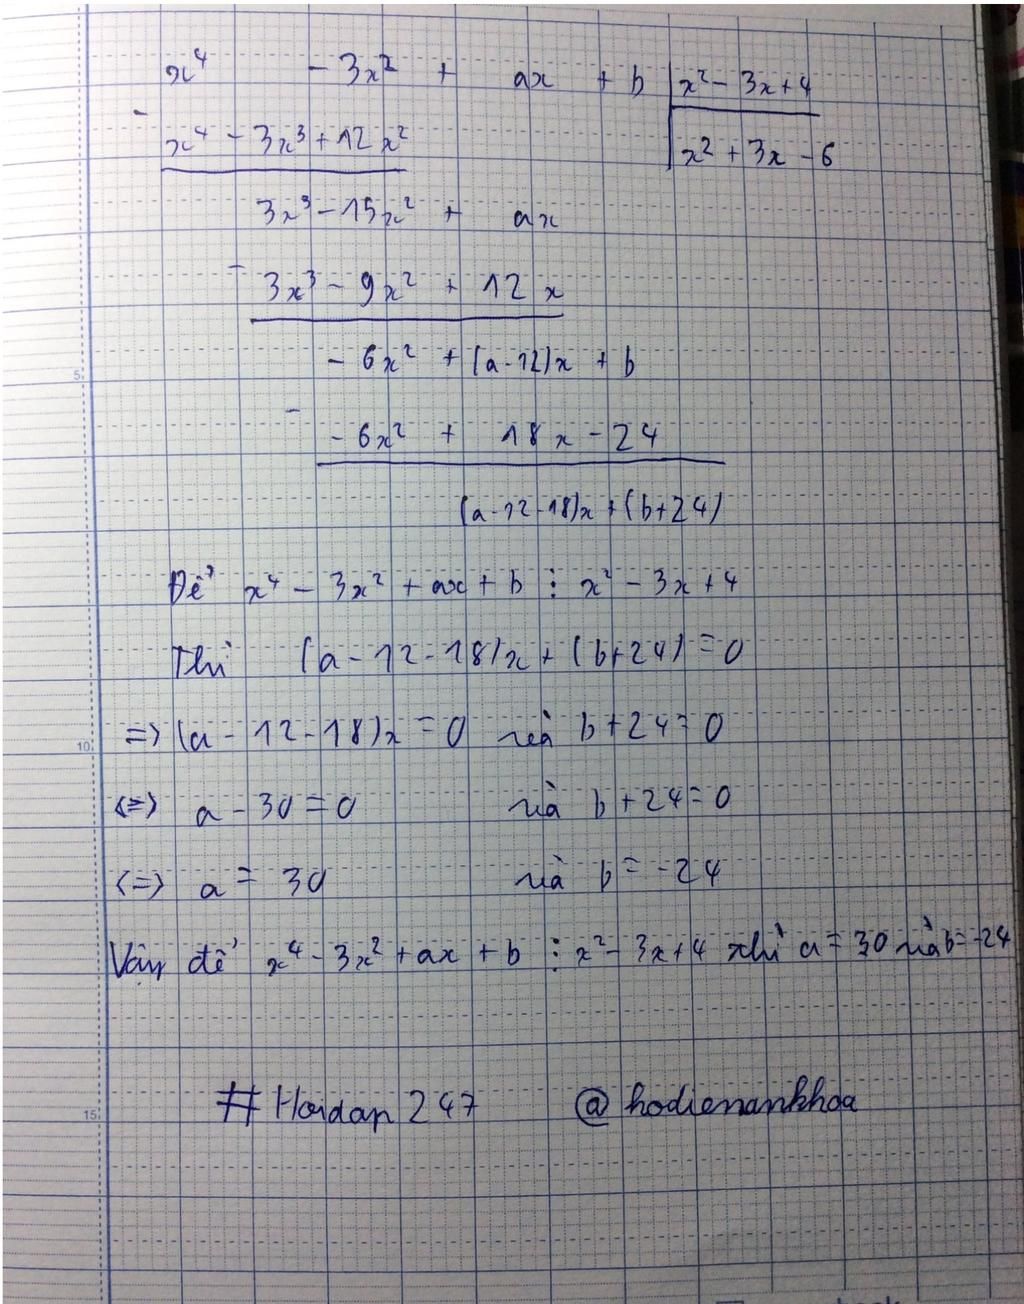 x⁴ - 3x² + ax + b | x² - 3x + 4
- x⁴ - 3x³ + 12x² | x² + 3x - 6
3x³ - 15x² + ax
- 3x³ - 9x² + 12x
- 6x² + (a-12)x + b
- - 6x² + 18x - 24
(a-12-18)x + (b+24)
Để x⁴ - 3x² + ax + b ⋮ x² - 3x + 4
Thì (a - 12 - 18)x + (b+24) = 0
=> (a - 12 - 18)x = 0 và b + 24 = 0
<=> a - 30 = 0 và b + 24 = 0
<=> a = 30 và b = -24
Vậy để x⁴ - 3x² + ax + b ⋮ x² - 3x + 4 thì a = 30 và b = -24
# Hoidap 247 @ hodienankhoa
5
10
15